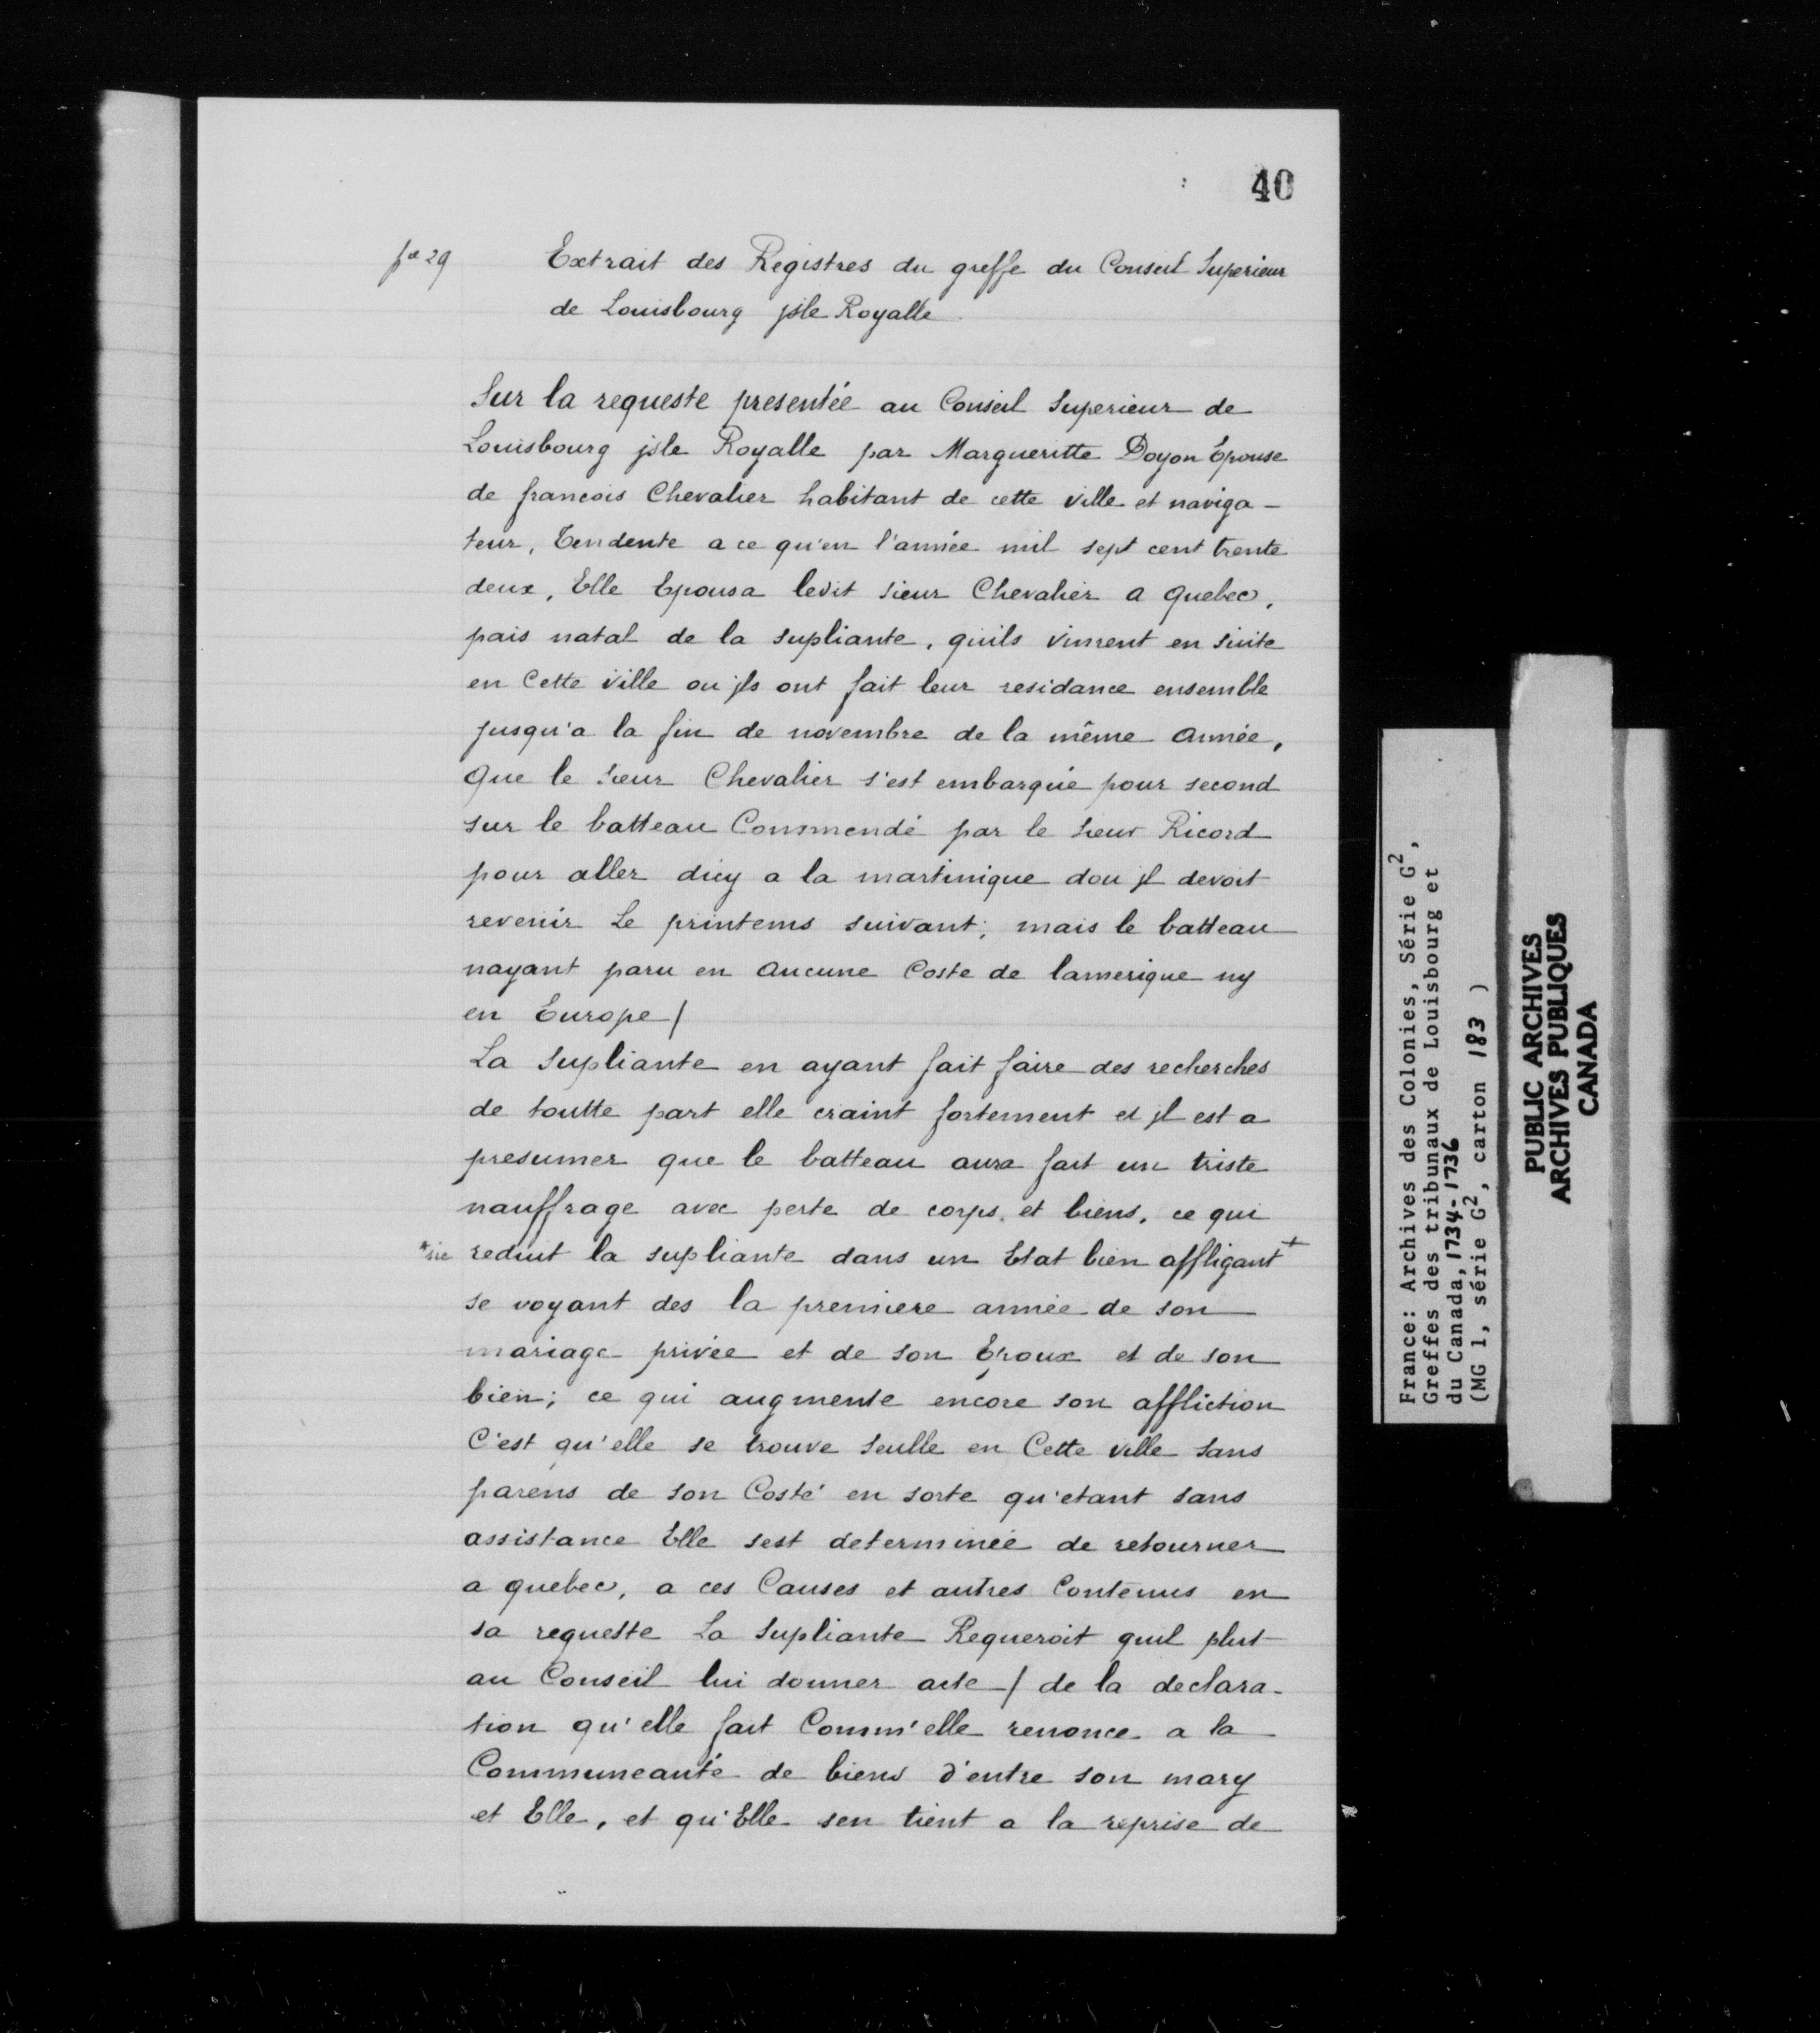 40
fo 29
Extrait des Registres du greffe du Conseil Superieur
de Louisbourg jsle Royalle
Sur la requeste presentée au Conseil Superieur de
Louisbourg jsle Royalle par Margueritte Doyon Epouse
de francois Chevalier habitant de cette ville et naviga-
teur, Tendente a ce qu'en l'année mil sept cent trente
deux, Elle Epousa ledit sieur Chevalier a quebec,
pais natal de la supliante, quils vinrent en suite
en Cette Ville ou jls ont fait leur residance ensemble
jusqu'a la fin de novembre de la même année,
Que le sieur Chevalier s'est embarquée pour second
sur le batteau Commendé par le sieur Ricord
pour aller dicy a la martinique dou jl devoit
revenir Le printems suivant; mais le batteau
nayant paru en Aucune Coste de lamerique ny
en Europe/
La Supliante en ayant fait faire des recherches
de toutte part elle craint fortement et jl est a
presumer que le batteau aura fait un triste
nauffrage avec perte de corps et biens, ce qui
*sic reduit la supliante dans un Etat bien affligant+
se voyant des la premiere année de son
mariage privée et de son Epoux et de son
bien; ce qui augmente encore son affliction
C'est qu'elle se trouve seulle en Cette ville sans
parens de son Costé en sorte qu'etant sans
assistance Elle sest determinée de retourner
a quebec, a ces Causes et autres Contenus en
sa requeste La Supliante Requeroit quil plut
au Conseil lui donner acte / de la declara-
tion qu'elle fait Comm'elle renonce a la
Communeauté de biens d'entre son mary
et Elle, et qu'Elle sen tient a la reprise de
France: Archives des Colonies, Série G2,
Greffes des tribunaux de Louisbourg et
du Canada, 1734-1736
(MG 1, série G2, carton 183 )
PUBLIC ARCHIVES
ARCHIVES PUBLIQUES
CANADA